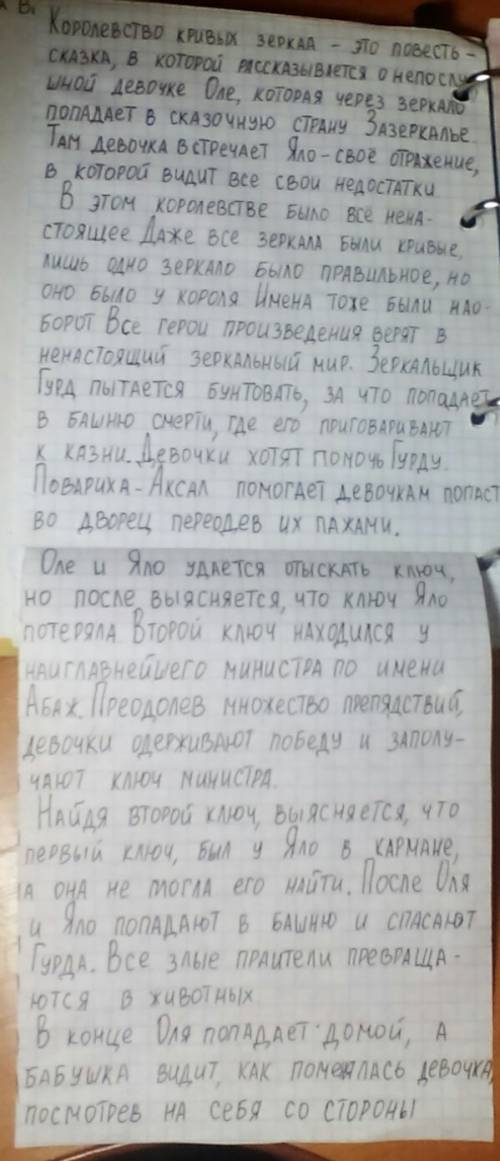 Королевство кривых зеркал – это повесть –
сказка, в которой рассказывается о непослу
шной девочке Оле, которая через зеркало
попадает в сказочную страну Зазеркалье.
Там девочка встречает Яло – своё отражение,
в которой видит все свои недостатки.
В этом королевстве было всё нена-
стоящее. Даже все зеркала были кривые,
лишь одно зеркало было правильное, но
оно было у короля. Имена тоже были нао-
борот. Все герои произведения верят в
ненастоящий зеркальный мир. Зеркальщик
Гурд пытается бунтовать, за что попадает
в башню смерти, где его приговаривают
к казни. Девочки хотят помочь Гурду.
Повариха – Аксал помогает девочкам попаст
во дворец переодев их пажами.
Оле и Яло удается отыскать ключ,
но после выясняется, что ключ Яло
потеряла. Второй ключ находился у
наиглавнейшего министра по имени
Абаж. Преодолев множество препядствий,
девочки одерживают победу и заполу-
чают ключ министра.
Найдя второй ключ, выясняется, что
первый ключ, был у Яло в кармане,
а она не могла его найти. После Оля
и Яло попадают в башню и спасают
Гурда. Все злые праители превраща-
ются в животных.
В конце Оля попадает домой, а
бабушка видит, как поменялась девочка,
посмотрев на себя со стороны